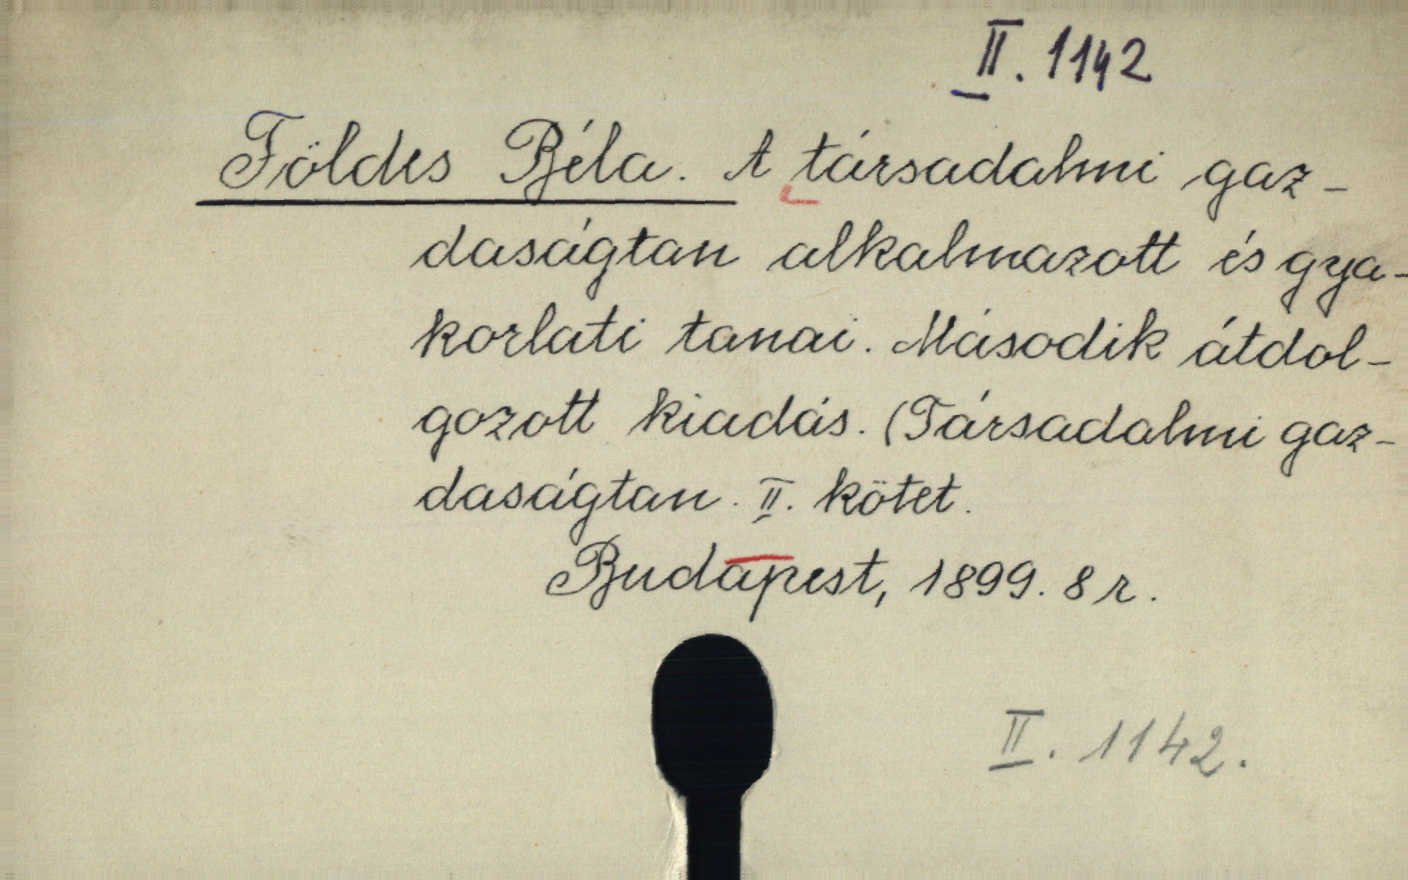 II. 1142
Földes Béla. A társadalmi gaz-
daságtan alkalmazott és gya-
korlati tanai. Második átdol-
gozott kiadás. (Társadalmi gaz-
daságtan. II. kötet.
Budapest, 1899. 8 r.
II. 1142.